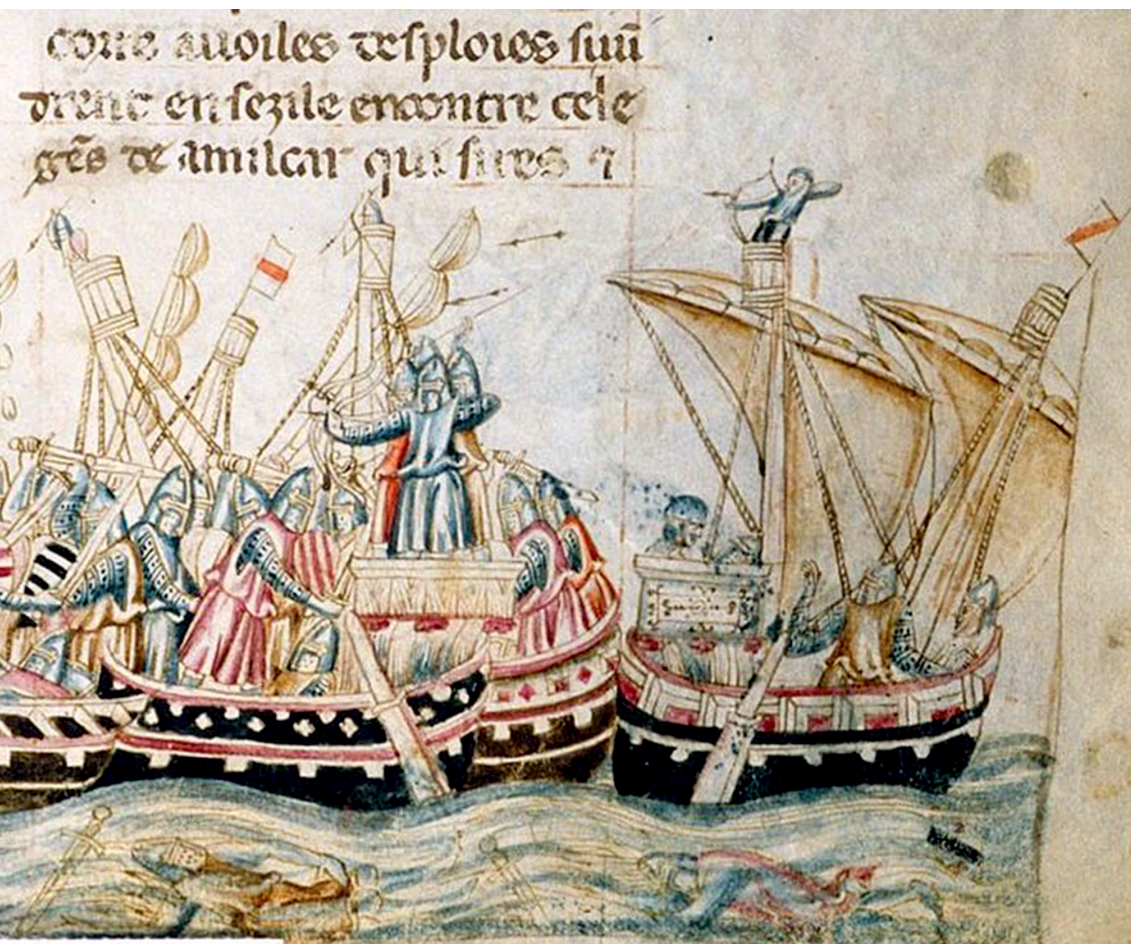 corre auoiles desploies suiu̅
drent en sezile encontre cele
ge̅s de amilcar qui sires ⁊